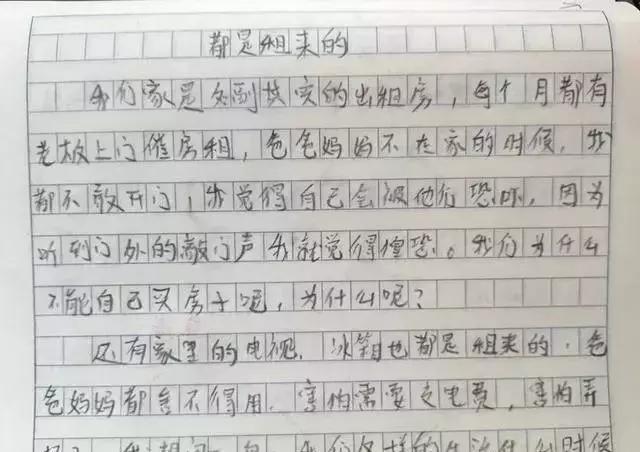 都是租来的
我们家是名副其实的出租房，每个月都有
老板上门催房租，爸爸妈妈不在家的时候，我
都不敢开门，我觉得自己会被他们恐吓，因为
听到门外的敲门声我就觉得惶恐。我们为什么
不能自己买房子呢，为什么呢？
还有家里的电视、冰箱也都是租来的．爸
爸妈妈都舍不得用．害怕需要交电费，害怕弄